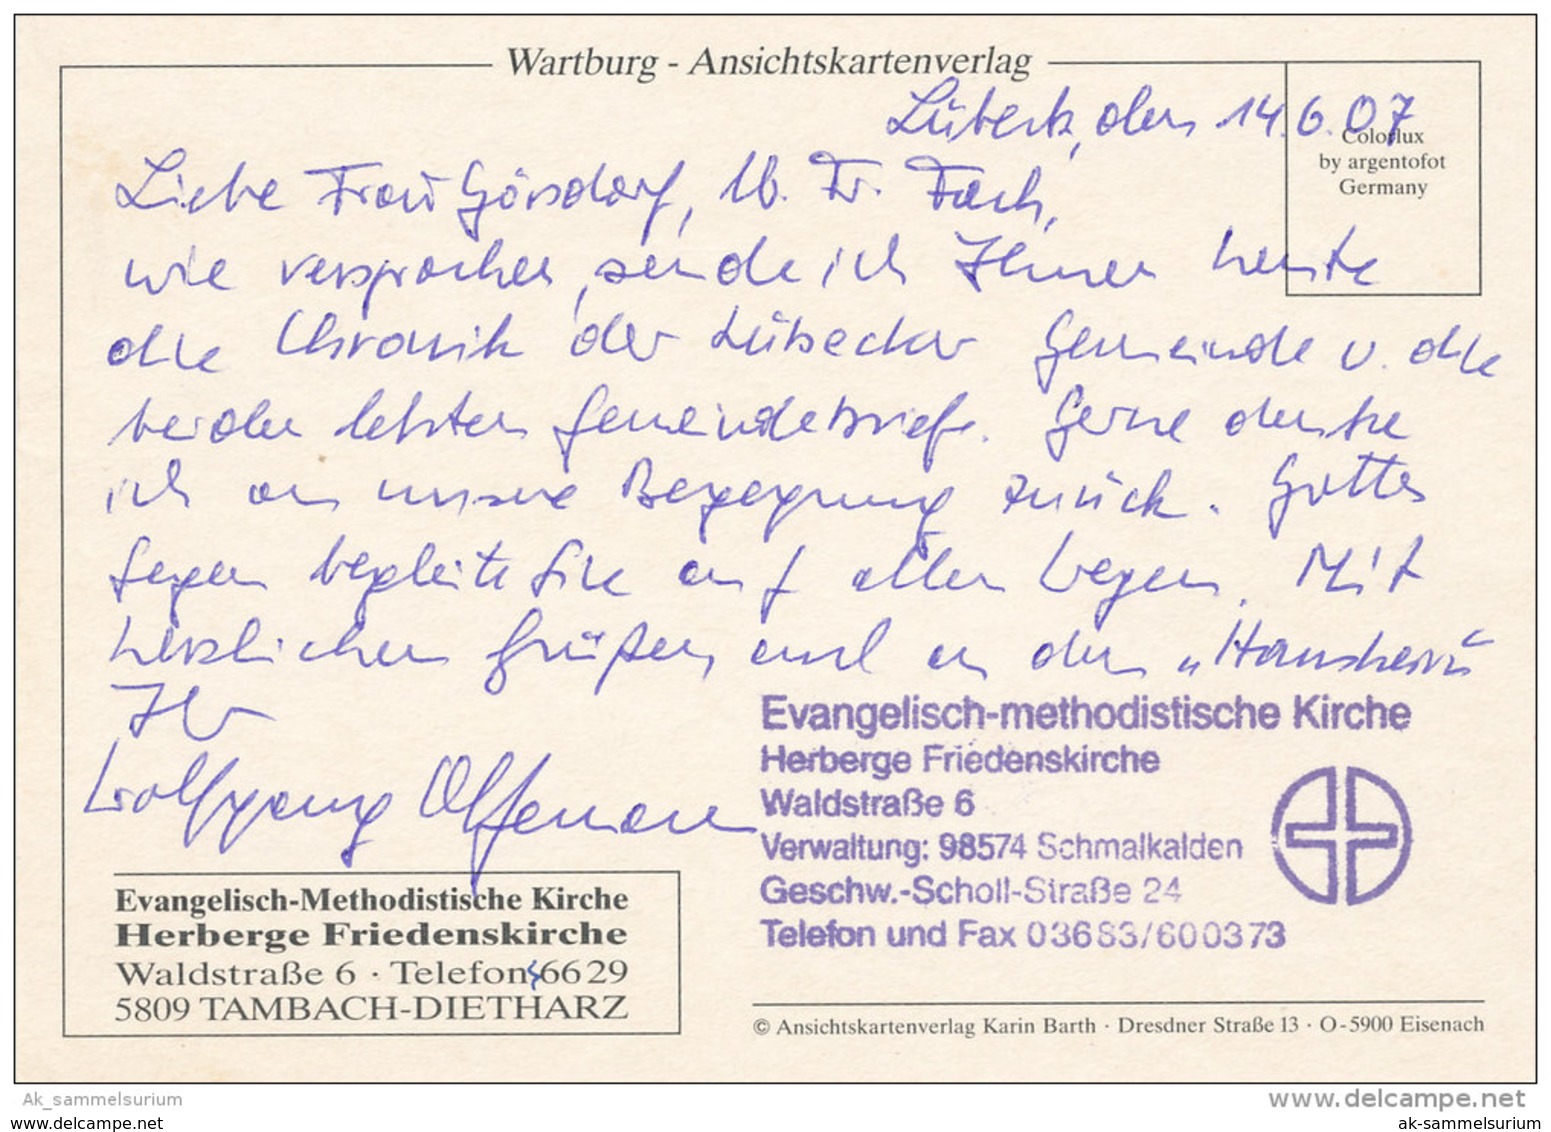 Wartburg - Ansichtskartenverlag
Lübeck, den 14.6.07
Colorflux
by argentofot
Germany
Liebe Frau Görsdorf, lb. Fr. Fach,
wie versprochen, sende ich Ihnen heute
die Chronik der Lübecker Gemeinde u. die
beiden letzten Gemeindebriefe. Gerne denke
ich an unsere Begegnung zurück. Gottes
Segen begleite Sie auf allen Wegen. Mit
herzlichen Grüßen, auch an den „Hausherrn“
Ihr
Wolfgang
Evangelisch-methodistische Kirche
Herberge Friedenskirche
Waldstraße 6
Verwaltung: 98574 Schmalkalden
Geschw.-Scholl-Straße 24
Telefon und Fax 03683/600373
Evangelisch-Methodistische Kirche
Herberge Friedenskirche
Waldstraße 6 · Telefon 6629
5809 TAMBACH-DIETHARZ
© Ansichtskartenverlag Karin Barth · Dresdner Straße 13 · O-5900 Eisenach
Ak_sammelsurium
www.delcampe.net
www.delcampe.net
ak-sammelsurium